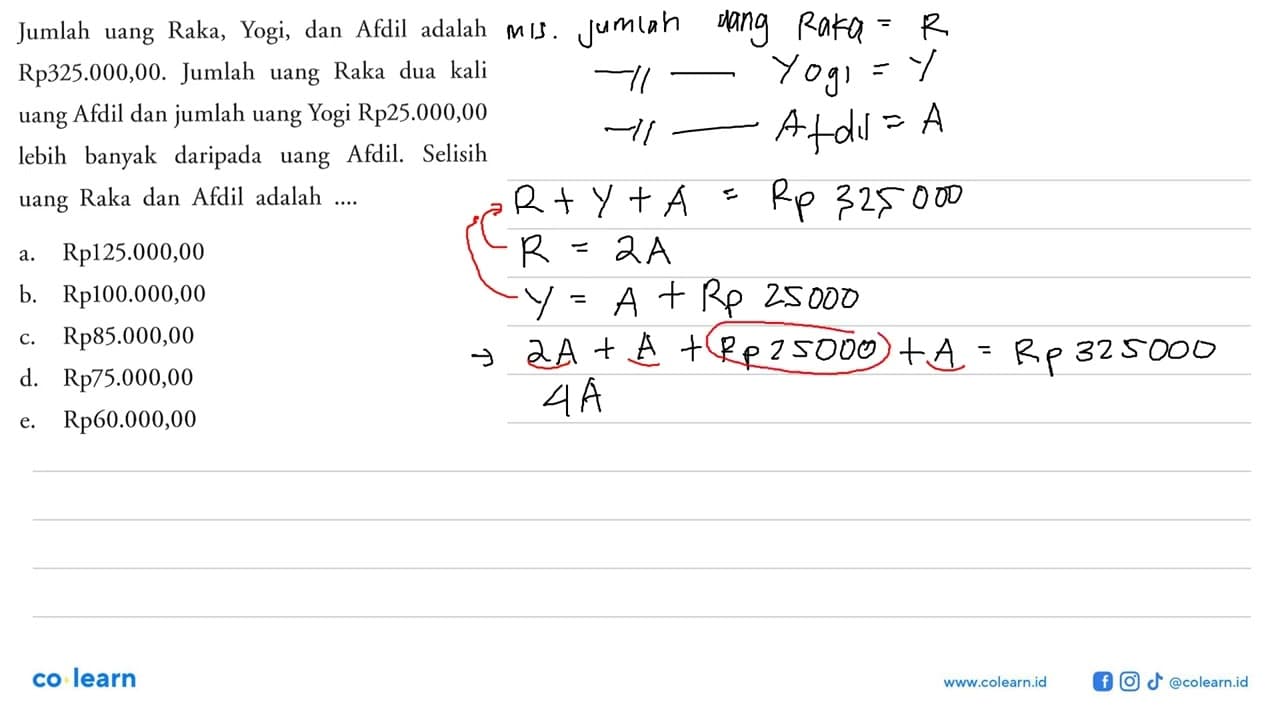 Jumlah uang Raka, Yogi, dan Afdil adalah
Rp325.000,00. Jumlah uang Raka dua kali
uang Afdil dan jumlah uang Yogi Rp25.000,00
lebih banyak daripada uang Afdil. Selisih
uang Raka dan Afdil adalah ....
a. Rp125.000,00
b. Rp100.000,00
c. Rp85.000,00
d. Rp75.000,00
e. Rp60.000,00
mis. jumlah uang Raka = R
—//— Yogi = Y
—//— Afdil = A
R + Y + A = Rp 325000
R = 2A
Y = A + Rp 25000
→ 2A + A + Rp 25000 + A = Rp 325000
4A
co learn
www.colearn.id
@colearn.id